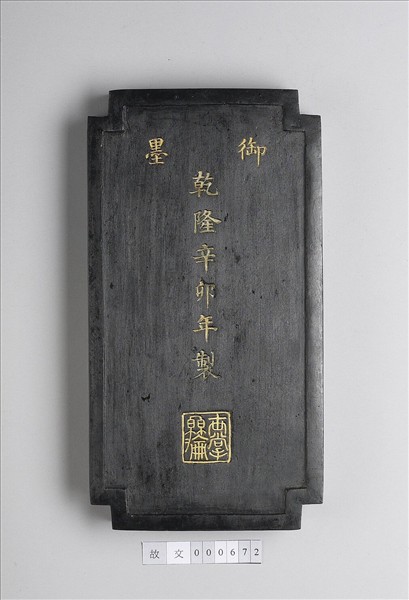 御墨
乾隆辛卯年製
故文000672